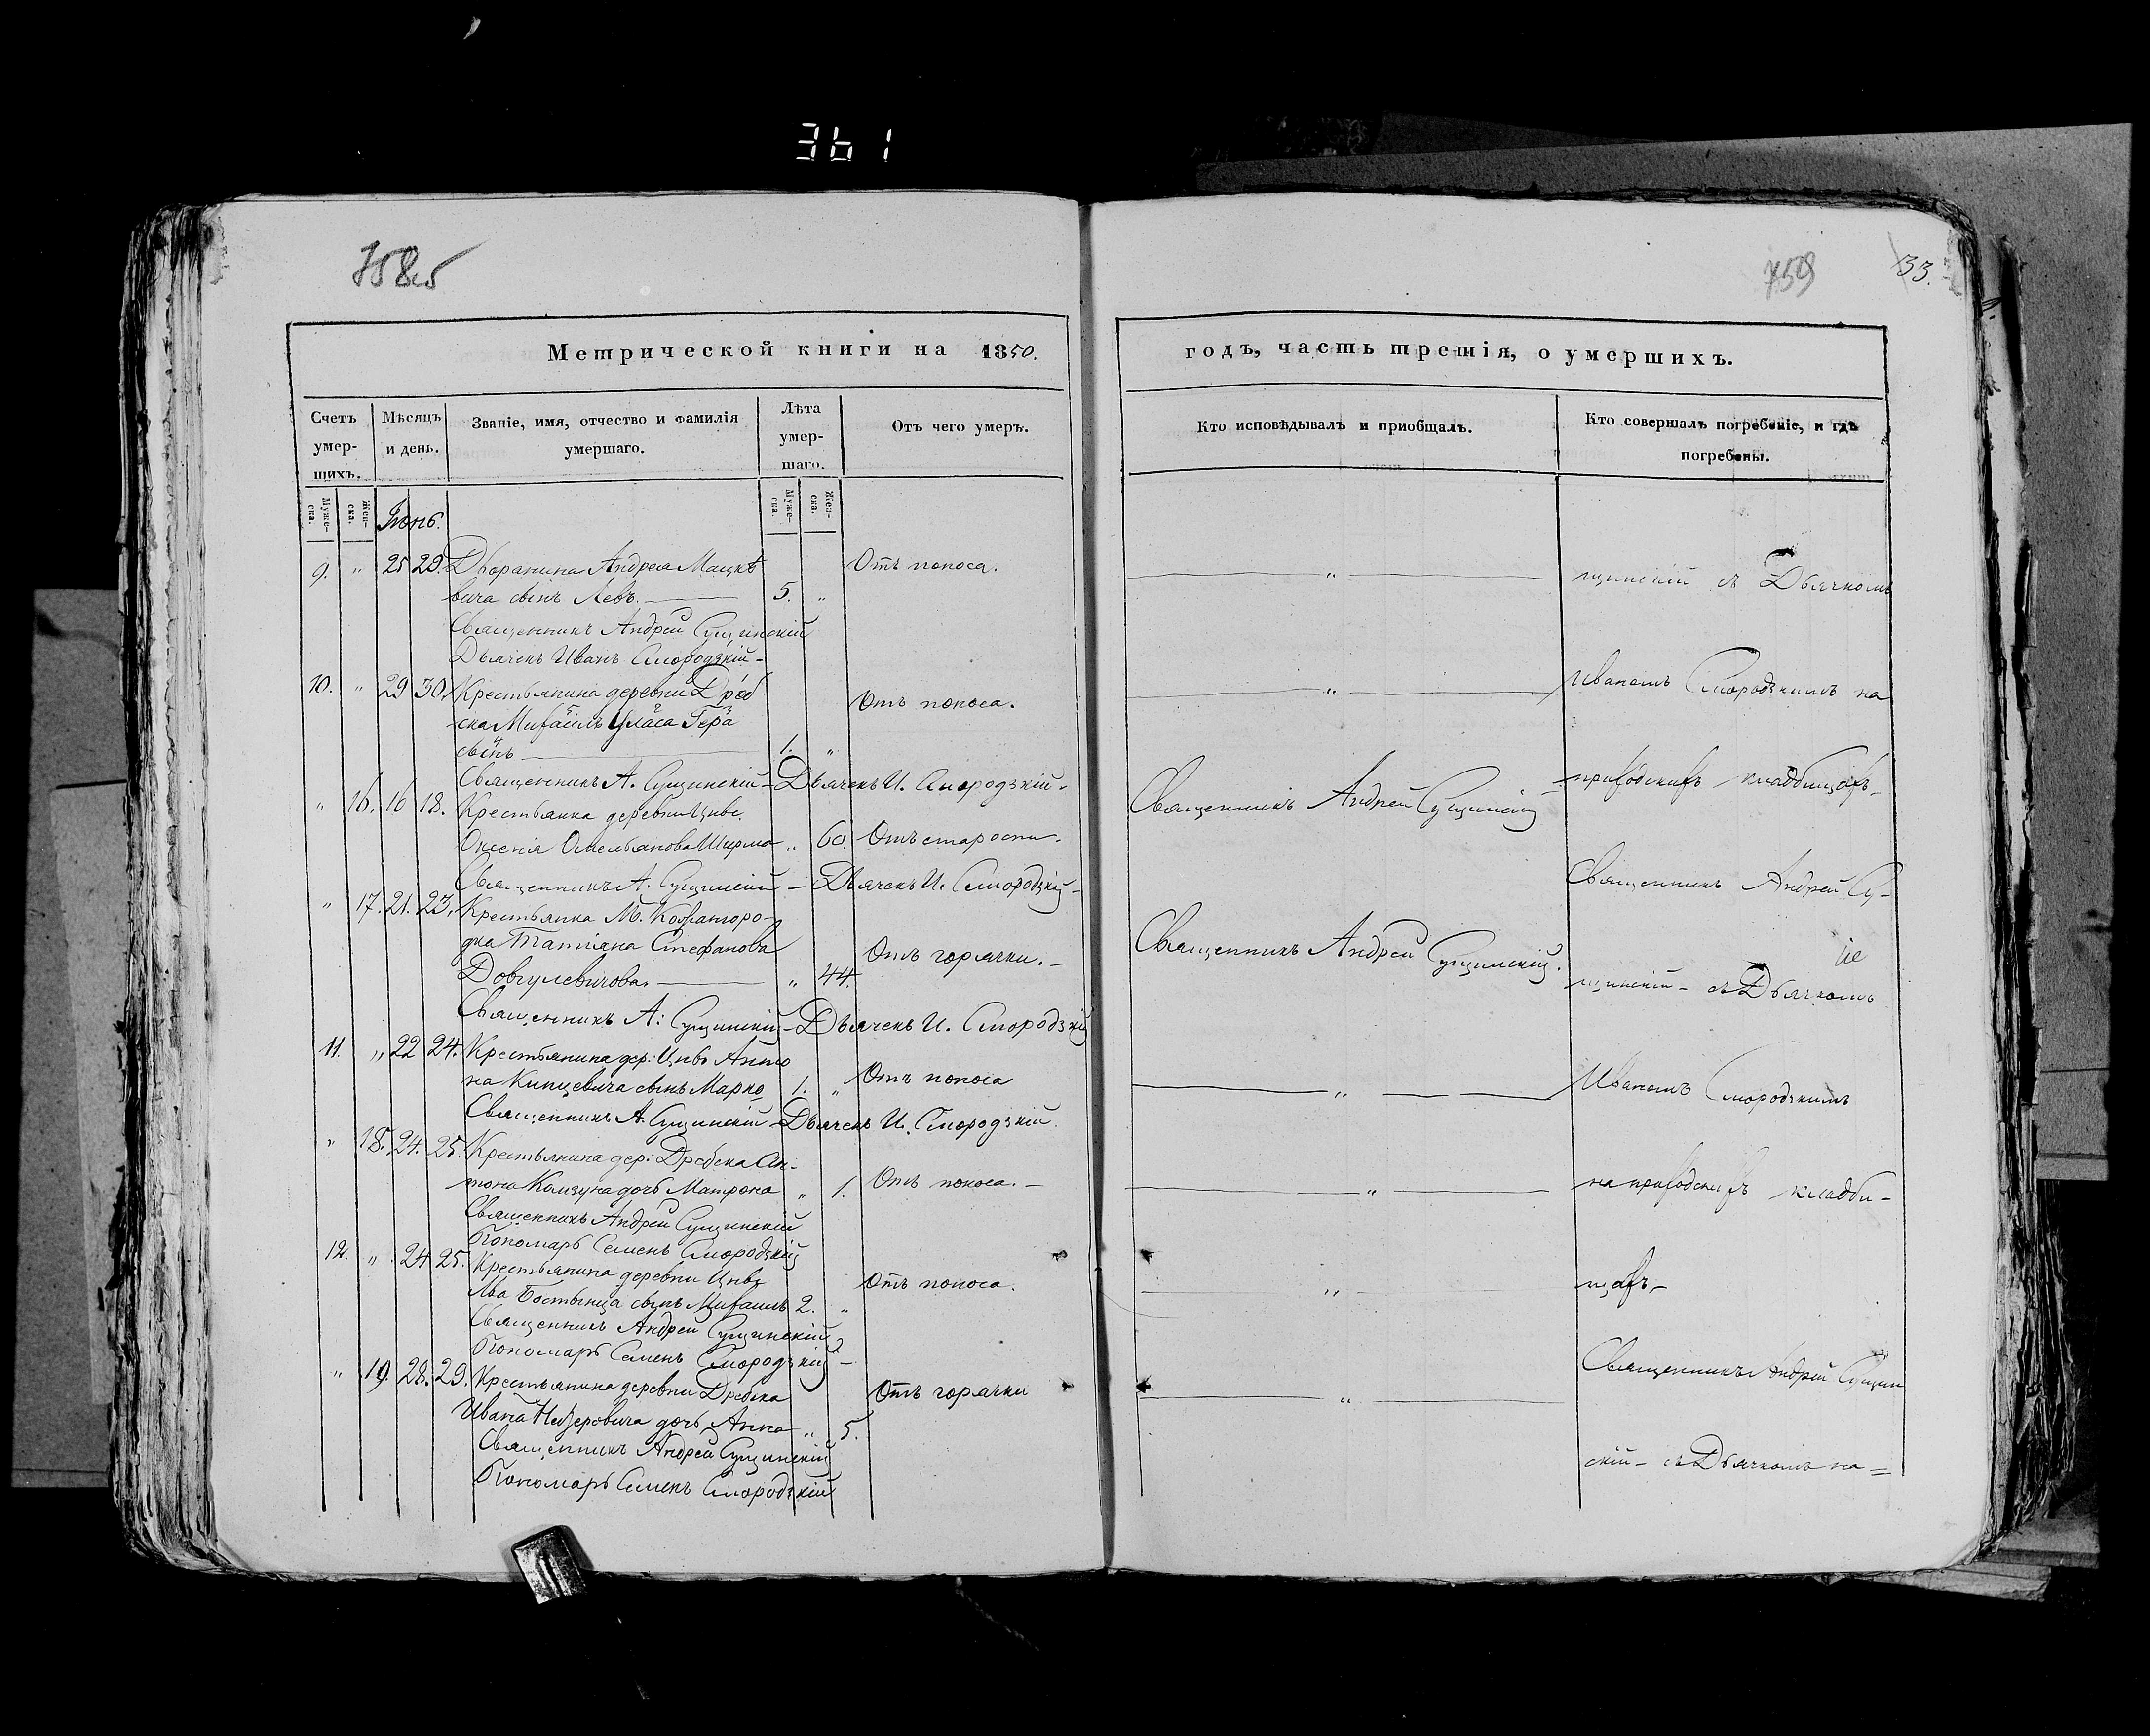 361
758
759
33.
Метрической книги на 1850.
годъ, часть третія, о умершихъ.
Счетъ умер-шихъ.
Мѣсяцъ и день.
Званіе, имя, отчество и фамилія умершаго.
Лѣта умер-шаго.
Отъ чего умеръ.
Кто исповѣдывалъ и приобщалъ.
Кто совершалъ погребеніе, и гдѣ погребены.
Муже-ска.
Жен-ска.
Муже-ска.
Жен-ска.
Іюнь.
9. " 25 29. Дворянина Андрея Мацке
Отъ поноса.
вича сынъ Левъ. 5. "
Священникъ Андрей Сущинскій
Дьячекъ Иванъ Смородзкій-
10. " 29 30. Крестьянина деревни Дреб
Отъ поноса.
ска Михаилъ Уласа Гера
сынъ 1. "
Священникъ А. Сущинскій - Дьячекъ И. Смородзкій-
" 16. 16 18. Крестьянка деревни Цнѣ
Оксенія Омельянова Ширма " 60. Отъ старости.
Священникъ А. Сущинскій - Дьячекъ И. Смородзкій-
" 17. 21. 23. Крестьянка М. Кожангоро-
дка Татіяна Стефанова
Отъ горячки.-
Довгулевичова. " 44.
Священникъ А: Сущинскій - Дьячекъ И. Смородзкій
11. " 22 24. Крестьянина дер: Цнѣ Анто
на Кипцевича сынъ Марко 1. " Отъ поноса
Священникъ А. Сущинскій - Дьячекъ И. Смородзкій.
" 18. 24. 25. Крестьянина дер: Дребска Ан-
тона Колзуна дочь Матрона " 1. Отъ поноса.-
Священникъ Андрей Сущинскій
Пономарь Семенъ Смородзкій
12. " 24 25. Крестьянина деревни Цнѣ
Отъ поноса.
Льва Бостынца сынъ Михаилъ 2. "
Священникъ Андрей Сущинскій
Пономарь Семенъ Смородзкій-
" 19. 28. 29. Крестьянина деревни Дребска
Отъ горячки
Ивана дочь Анна " 5.
Священникъ Андрей Сущинскій
Пономарь Семенъ Смородзкій
"
щинскій съ Дьячкомъ
"
Иваномъ Смородзкимъ на
приходскихъ кладбищахъ-
Священникъ Андрей Сущинскій
Священникъ Андрей Су-
Священникъ Андрей Сущинскій.
щинскій - съ Дьячкомъ
"
Иваномъ Смородзкимъ
"
на приходскихъ кладби-
"
щахъ-
Священникъ Андрей Сущин
"
скій - съ Дьячкомъ на=